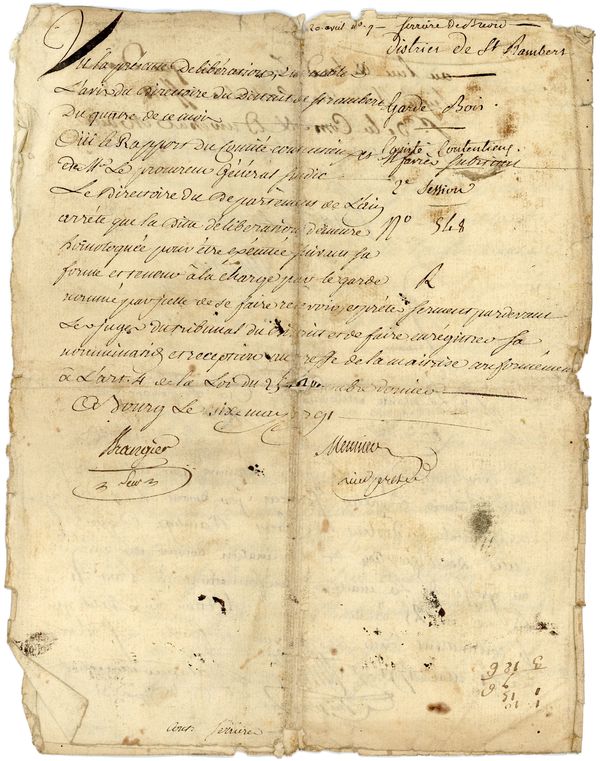 20 avril 1791 — Serrière de Briord
District de St Rambert
Vu la présente Délibération, Ensemble
L'avis du Directoire du District de St rambert
Du quatre de ce mois
Garde Bois
Ouï le Rapport du Comité contentieux et
du Mr Le procureur Général sindic
Comité Contentieux
2e Session
Le Directoire du Département de L'ain
arrête que la Dite délibération demeure
N° 548
homologuée pour être exécutée suivant sa
forme et teneur à la charge par le garde
R
nommé par icelle de se faire recevoir, et prêter serment pardevant
Les juges du tribunal du District et de faire enregistrer sa
nomination et reception au greffe de la maitrise conformément
à L'art. 4 de la Loi du 25 Decembre dernier
A Bourg Le six may 1791
Brangier
Meunier
vice president
cont. Serriere